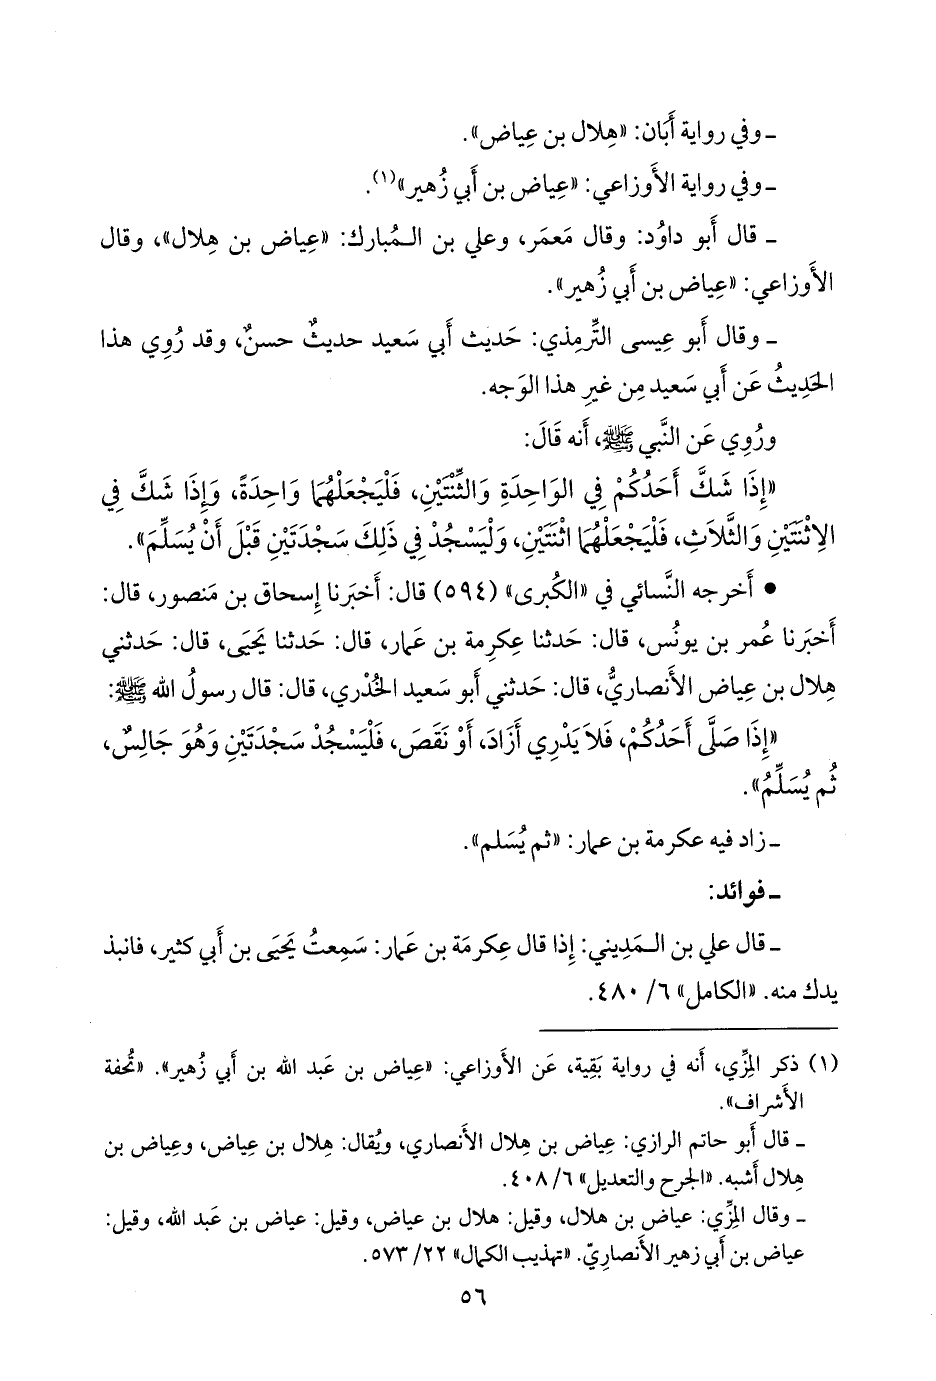 ـ وفي رواية أَبَان: «هِلال بن عِياض».
ـ وفي رواية الأَوزاعي: «عِياض بن أَبي زُهير»(١).
ـ قال أَبو داوُد: وقال مَعمَر، وعلي بن الـمُبارك: «عِياض بن هِلال»، وقال
الأَوزاعي: «عِياض بن أَبي زُهير».
ـ وقال أَبو عِيسى التِّرمِذي: حَديث أَبي سَعيد حديثٌ حسنٌ، وقد رُوِي هذا
الحَدِيثُ عَن أَبي سَعيد مِن غيرِ هذا الوَجه.
ورُوِي عَن النَّبي ﷺ، أَنه قَالَ:
«إِذَا شَكَّ أَحَدُكُمْ فِي الوَاحِدَةِ وَالثِّنْتَيْنِ، فَلْيَجْعَلْهُمَا وَاحِدَةً، وَإِذَا شَكَّ فِي
الِاثْنَتَيْنِ وَالثَّلَاثِ، فَلْيَجْعَلْهُمَا اثْنَتَيْنِ، وَلْيَسْجُدْ فِي ذَلِكَ سَجْدَتَيْنِ قَبْلَ أَنْ يُسَلِّمَ».
• أَخرجه النَّسائي في «الكُبرى» (٥٩٤) قال: أَخبَرنا إِسحاق بن مَنصور، قال:
أَخبَرنا عُمر بن يونُس، قال: حَدثنا عِكرِمة بن عَمار، قال: حَدثنا يَحيَى، قال: حَدثني
هِلال بن عِياض الأَنصاريُّ، قال: حَدثني أَبو سَعيد الخُدْري، قال: قال رسولُ الله ﷺ:
«إِذَا صَلَّى أَحَدُكُمْ، فَلاَ يَدْرِي أَزَادَ، أَوْ نَقَصَ، فَلْيَسْجُدْ سَجْدَتَيْنِ وَهُوَ جَالِسٌ،
ثُم يُسَلِّمُ».
ـ زاد فيه عكرمة بن عمار: «ثم يُسَلم».
ـ فوائد:
ـ قال علي بن الـمَدِيني: إِذا قال عِكرمَة بن عَمار: سَمِعتُ يَحيَى بن أَبي كثير، فانبذ
يدك منه. «الكامل» ٦/ ٤٨٠.
(١) ذكر المِزِّي، أَنه في رواية بَقِية، عَن الأَوزاعي: «عِياض بن عَبد الله بن أَبي زُهير». «تُحفة
الأَشراف».
ـ قال أَبو حاتم الرازي: عِياض بن هِلال الأَنصاري، ويُقال: هِلال بن عِياض، وعِياض بن
هِلال أَشبه. «الجرح والتعديل» ٦/ ٤٠٨.
ـ وقال المِزِّي: عياض بن هلال، وقيل: هلال بن عياض، وقيل: عياض بن عَبد الله، وقيل:
عياض بن أَبي زهير الأَنصارِيّ. «تهذيب الكمال» ٢٢/ ٥٧٣.
٥٦